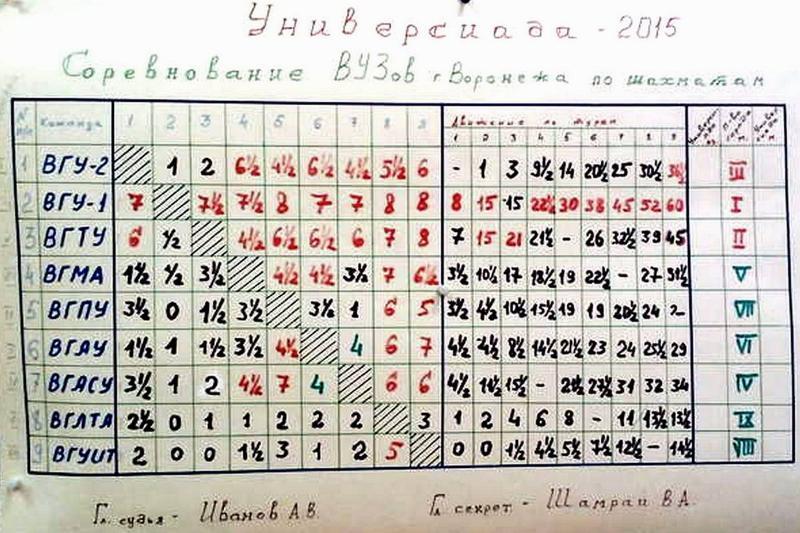 Универсиада - 2015
Соревнование ВУЗов г. Воронежа по шахматам
Команда 1 2 3 4 5 6 7 8 9 Движение по турам
1 2 3 4 5 6 7 8 9
1 ВГУ-2 1 2 6½ 4½ 6½ 4½ 5½ 6 - 1 3 9½ 14 20½ 25 30½ 36½ III
2 ВГУ-1 7 7½ 7½ 8 7 7 8 8 8 15 15 22½ 30 38 45 52 60 I
3 ВГТУ 6 ½ 4½ 6½ 6½ 6 7 8 7 15 21 21½ - 26 32½ 39 45 II
4 ВГМА 1½ ½ 3½ 4½ 4½ 3½ 7 6½ 3½ 10½ 17 18½ 19 22½ - 27 31½ V
5 ВГПУ 3½ 0 1½ 3½ 3½ 1 6 5 3½ 4½ 10½ 15½ 19 19 20½ 24 2 VII
6 ВГАУ 1½ 1 1½ 3½ 4½ 4 6 7 4½ 4½ 8½ 14½ 21½ 23 24 25½ 29 VI
7 ВГАСУ 3½ 1 2 4½ 7 4 6 6 4½ 11½ 15½ - 21½ 27½ 31 32 34 IV
8 ВГЛТА 2½ 0 1 1 2 2 2 3 1 2 4 6 8 - 11 13½ 13½ IX
9 ВГУИТ 2 0 0 1½ 3 1 2 5 0 0 1½ 4½ 5½ 7½ 12½ - 14½ VIII
Гл. судья - Иванов А.В. Гл. секрет. - Шамрай В.А.